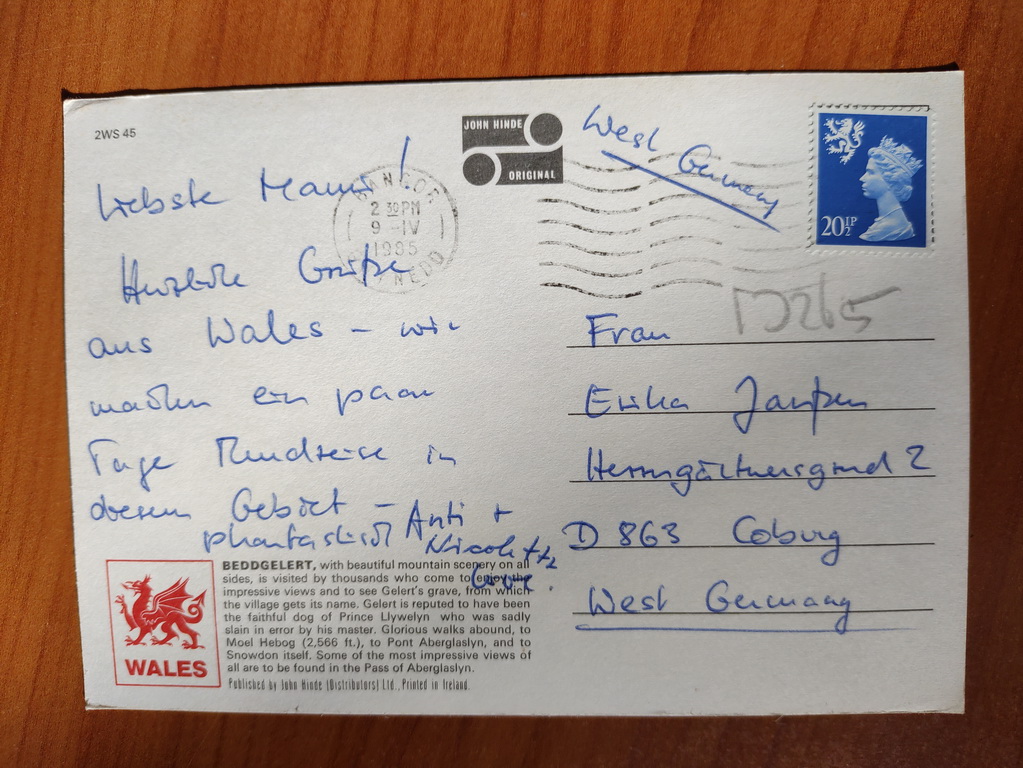 2WS 45
JOHN HINDE
ORIGINAL
West Germany
20½P
BANGOR
2 30PM
9 IV
GWYNEDD
Liebste Mami!
Herzliche Grüße
aus Wales – wir
machen ein paar
Tage Rundreise in
diesem Gebiet –
phantastisch
Anti +
Nicolette
D265
Frau
Erika Janßen
Herrngärtnersgrund 2
D 863 Coburg
West Germany
BEDDGELERT, with beautiful mountain scenery on all
sides, is visited by thousands who come to enjoy the
impressive views and to see Gelert's grave, from which
the village gets its name. Gelert is reputed to have been
the faithful dog of Prince Llywelyn who was sadly
slain in error by his master. Glorious walks abound, to
Moel Hebog (2,566 ft.), to Pont Aberglaslyn, and to
Snowdon itself. Some of the most impressive views of
all are to be found in the Pass of Aberglaslyn.
Published by John Hinde (Distributors) Ltd., Printed in Ireland.
WALES